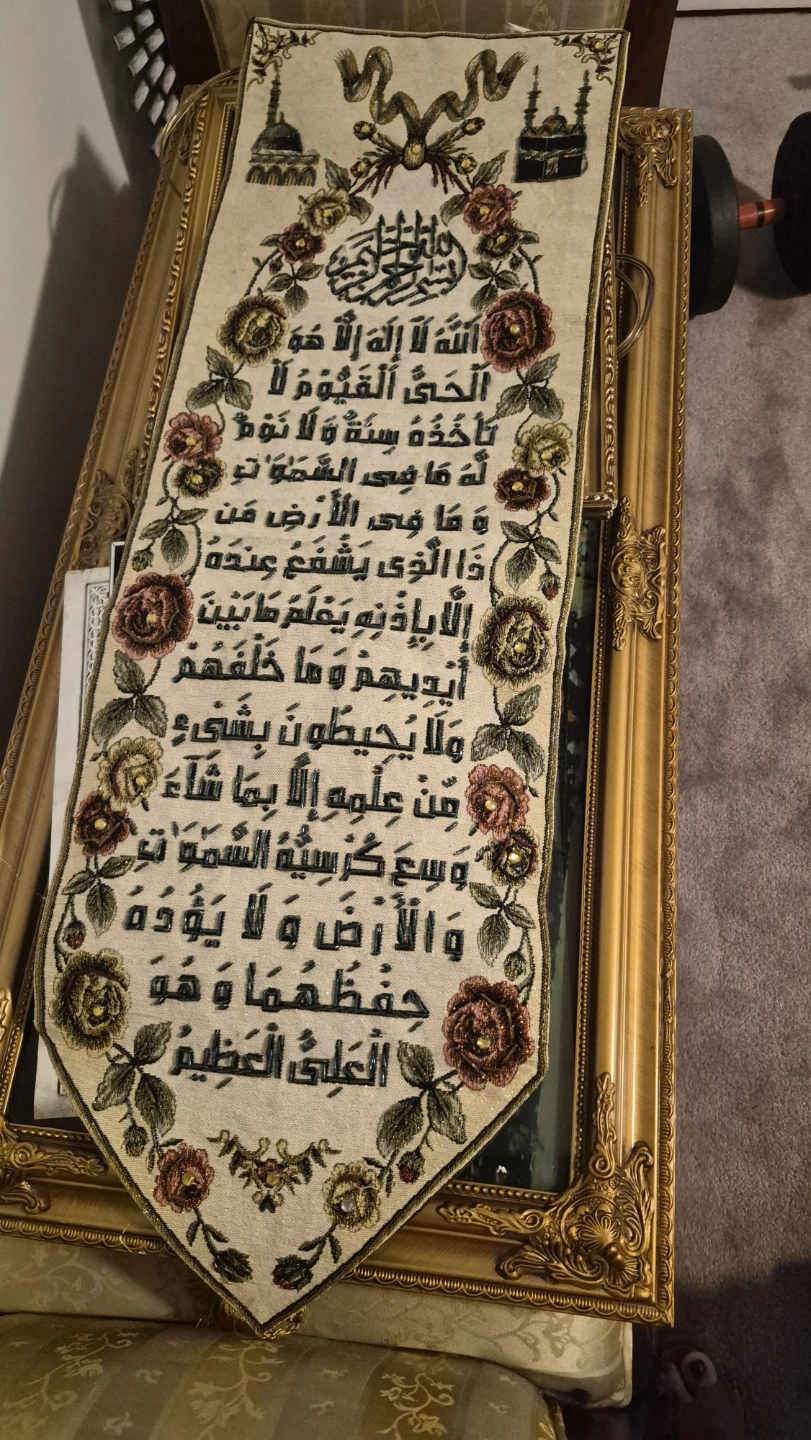 بسم الله الرحمن الرحيم
اَللّٰهُ لَآ إِلٰهَ إِلَّا هُوَ
اَلْحَىُّ الْقَيُّوْمُ لَا
تَأْخُذُهُ سِنَةٌ وَلَا نَوْمٌ
لَّهُ مَا فِى السَّمٰوٰتِ
وَ مَا فِى الْأَرْضِ مَن
ذَا الَّذِى يَشْفَعُ عِندَهُ
إِلَّا بِإِذْنِهِ يَعْلَمُ مَا بَيْنَ
أَيْدِيهِمْ وَمَا خَلْفَهُمْ
وَلَا يُحِيطُونَ بِشَىْءٍ
مِّنْ عِلْمِهِ إِلَّا بِمَا شَآءَ
وَسِعَ كُرْسِيُّهُ السَّمٰوٰتِ
وَالْأَرْضَ وَ لَا يَؤُدُهُ
حِفْظُهُمَا وَهُوَ
الْعَلِىُّ الْعَظِيمُ